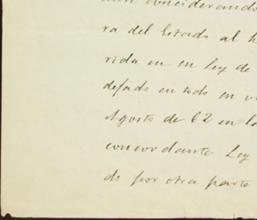 considerando
ra del Estado al h
rida en su Ley de
en todo en
Agosto de 62 en la
concordante Ley
do por otra parte